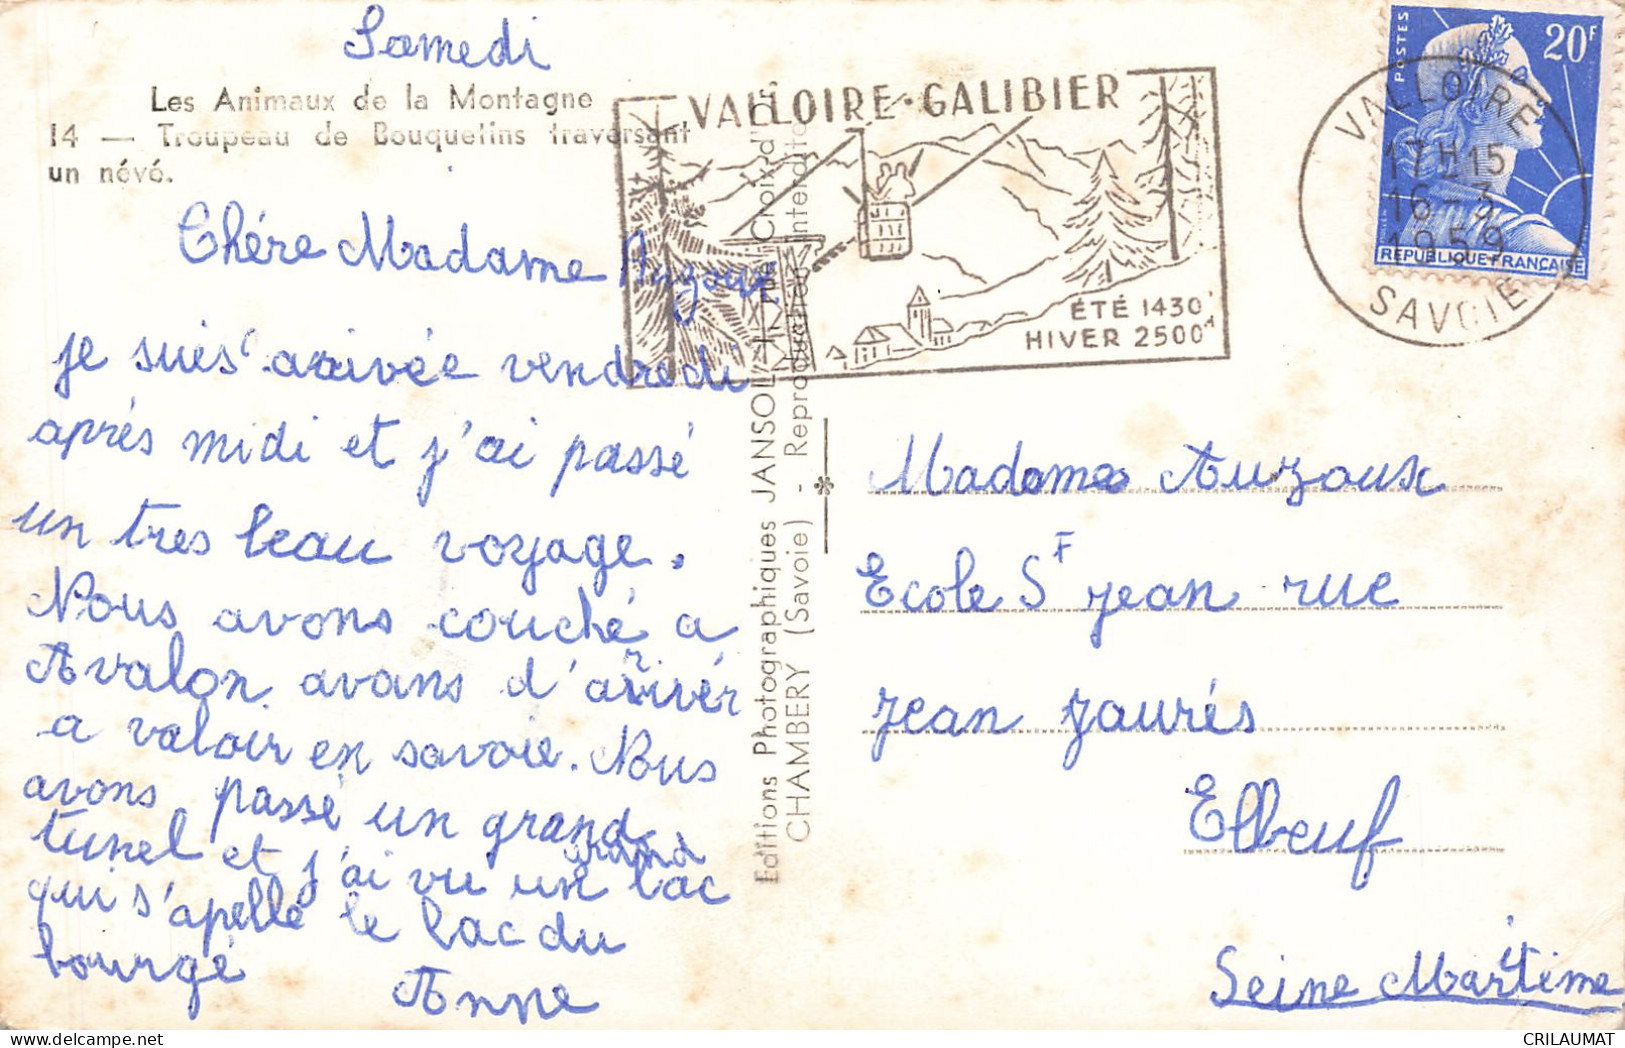 Samedi
Les Animaux de la Montagne
14 — Troupeau de Bouquetins traversant
un névé.
Chére Madame Auzoux
je suis arrivée vendredi
aprés midi et j'ai passé
un tres beau voyage.
Nous avons couché a
Avalon avans d'arrivér
a valoir en savoie. Nous
avons passé un grand
tunel et j'ai vu un grand lac
qui s'apelle le lac du
bourgé
Anne
Editions Photographiques JANSOL
Croix d'Or
CHAMBERY (Savoie) - Reproduction interdite
VALLOIRE·GALIBIER
ÉTÉ 1430
HIVER 2500
POSTES
20F
REPUBLIQUE FRANÇAISE
VALLOIRE
17H15
16-3
1959
SAVOIE
Madame Auzoux
Ecole St jean rue
jean jaurés
Elbeuf
Seine Maritime
CRILAUMAT